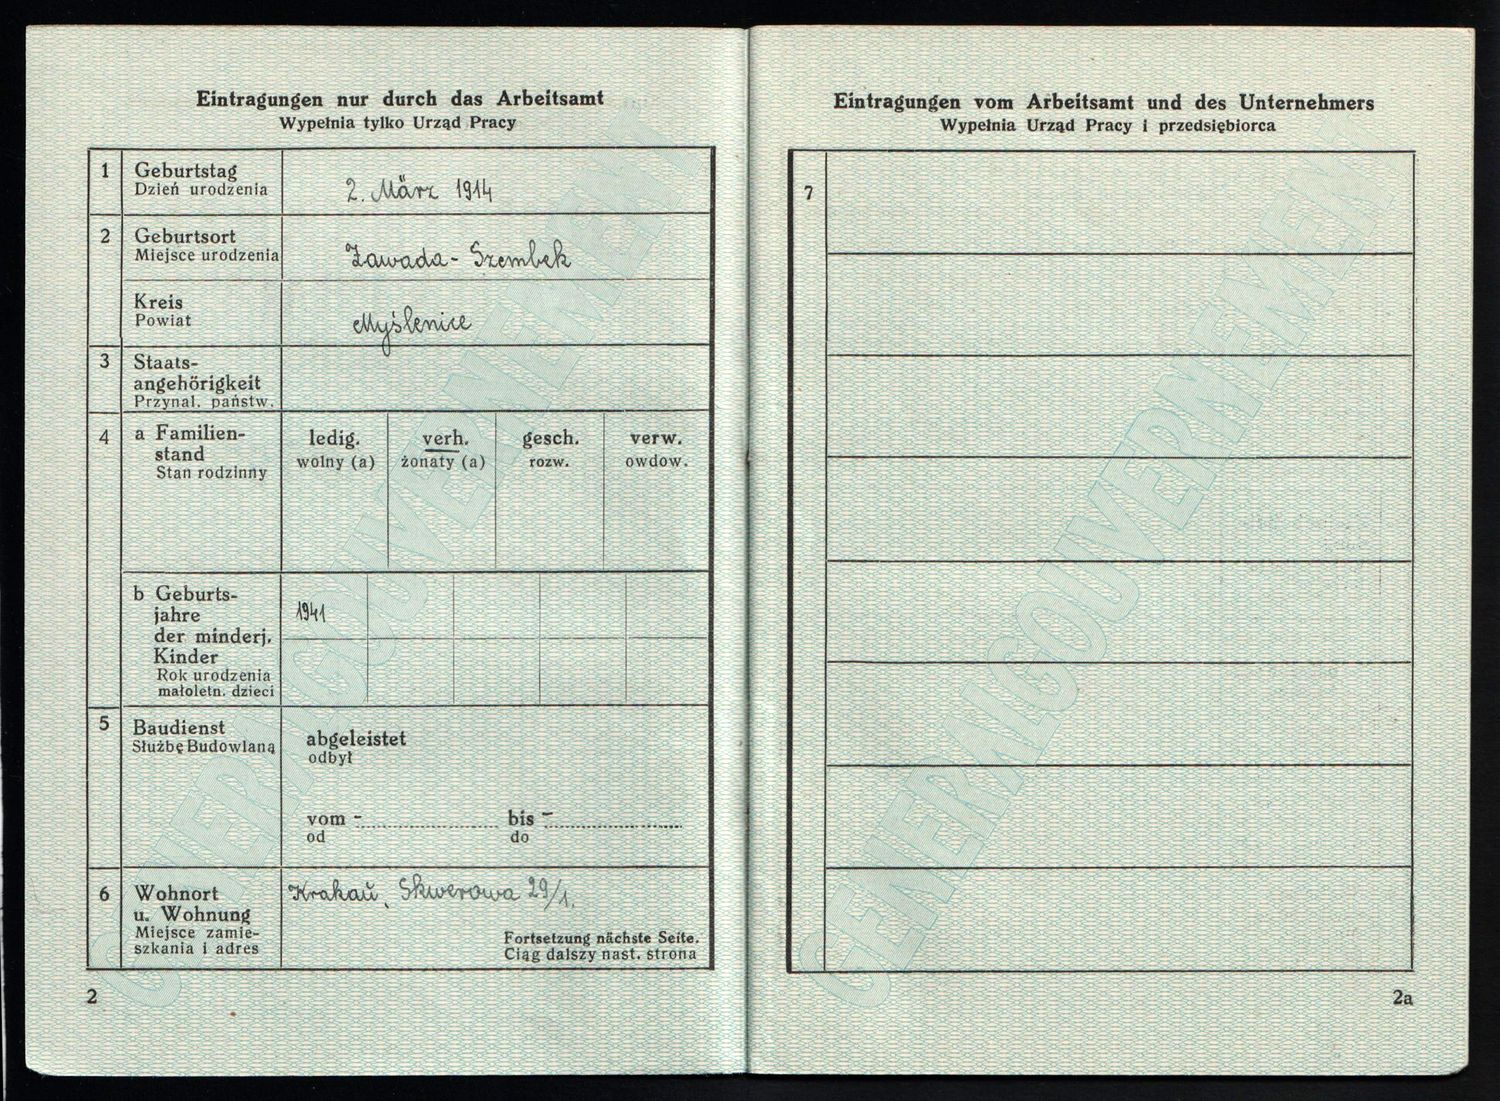 Eintragungen nur durch das Arbeitsamt
Wypełnia tylko Urząd Pracy
1 Geburtstag
Dzień urodzenia
2. März 1914
2 Geburtsort
Miejsce urodzenia
Zawada-Szembek
Kreis
Powiat
Myślenice
3 Staats-
angehörigkeit
Przynal. państw.
4 a Familien-
stand
Stan rodzinny
ledig. verh. gesch. verw.
wolny (a) żonaty (a) rozw. owdow.
b Geburts-
jahre
der minderj.
Kinder
Rok urodzenia
małoletn. dzieci
1941
5 Baudienst
Służbę Budowlaną
abgeleistet
odbył
vom - bis -
od do
6 Wohnort
u. Wohnung
Miejsce zamie-
szkania i adres
Krakau, Skwerowa 29/1.
Fortsetzung nächste Seite.
Ciąg dalszy nast. strona
2
GENERALGOUVERNEMENT
Eintragungen vom Arbeitsamt und des Unternehmers
Wypełnia Urząd Pracy i przedsiębiorca
7
2a
GENERALGOUVERNEMENT